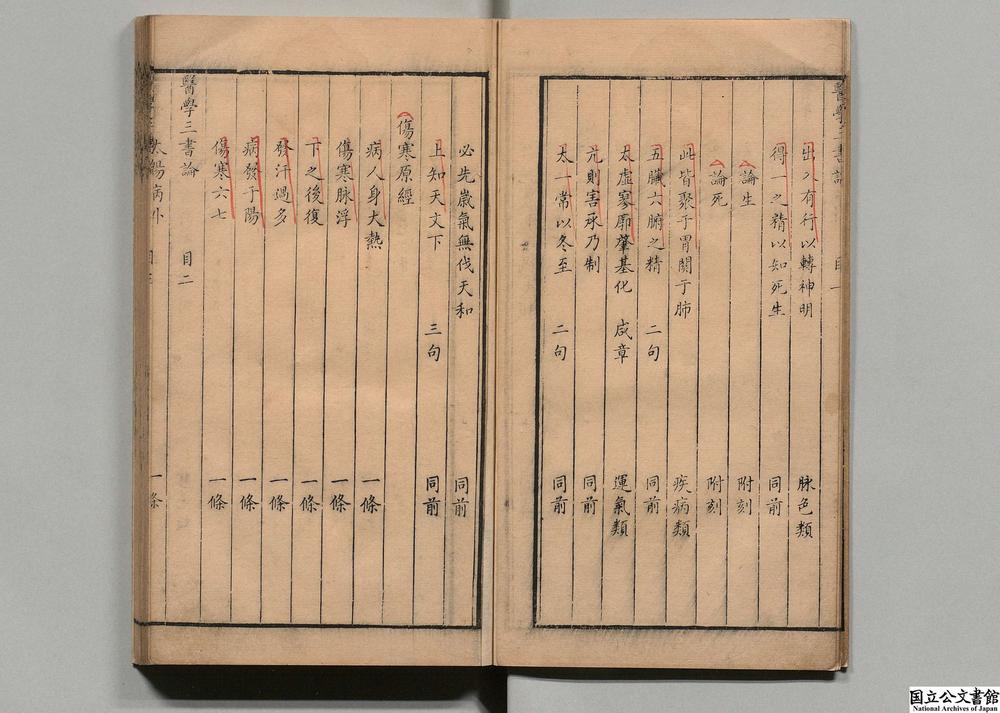 醫學三書論 目一
出入有行以轉神明 脉色類
得一之精以知死生 同前
論生 附刻
論死 附刻
此皆聚于胃關于肺 疾病類
五臟六腑之精 二句 同前
太虛寥廓肇基化 成章 運氣類
亢則害承乃制 同前
太一常以冬至 二句 同前
必先歲氣無伐天和 同前
上知天文下 三句 同前
傷寒原經
病人身大熱 一條
傷寒脉浮 一條
下之後復 一條
發汗過多 一條
病發于陽 一條
傷寒六七 一條
醫學三書論 目二
太陽病外 一條
国立公文書館
National Archives of Japan